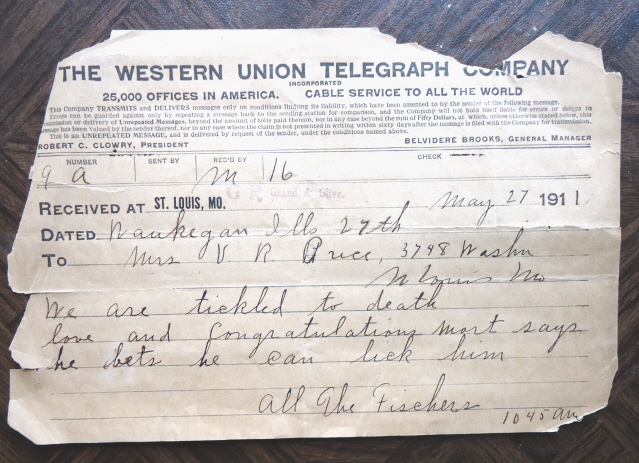 THE WESTERN UNION TELEGRAPH COMPANY
INCORPORATED
25,000 OFFICES IN AMERICA. CABLE SERVICE TO ALL THE WORLD
This Company TRANSMITS and DELIVERS messages only on conditions limiting its liability, which have been assented to by the sender of the following message.
Errors can be guarded against only by repeating a message back to the sending station for comparison, and the Company will not hold itself liable for errors or delays in
transmission or delivery of Unrepeated Messages, beyond the amount of tolls paid thereon, nor in any case beyond the sum of Fifty Dollars, at which, unless otherwise stated below, this
message has been valued by the sender thereof, nor in any case where the claim is not presented in writing within sixty days after the message is filed with the Company for transmission.
This is an UNREPEATED MESSAGE, and is delivered by request of the sender, under the conditions named above.
ROBERT C. CLOWRY, PRESIDENT BELVIDERE BROOKS, GENERAL MANAGER
NUMBER SENT BY REC'D BY CHECK
9 a m 16
Grand & Olive.
RECEIVED AT ST. LOUIS, MO. May 27 1911
DATED Waukegan Ills 27th
To Mrs V. R. Price, 3748 Washn
St Louis Mo
We are tickled to death
love and Congratulations Mort says
he bets he can lick him
all The Fischers
1045am